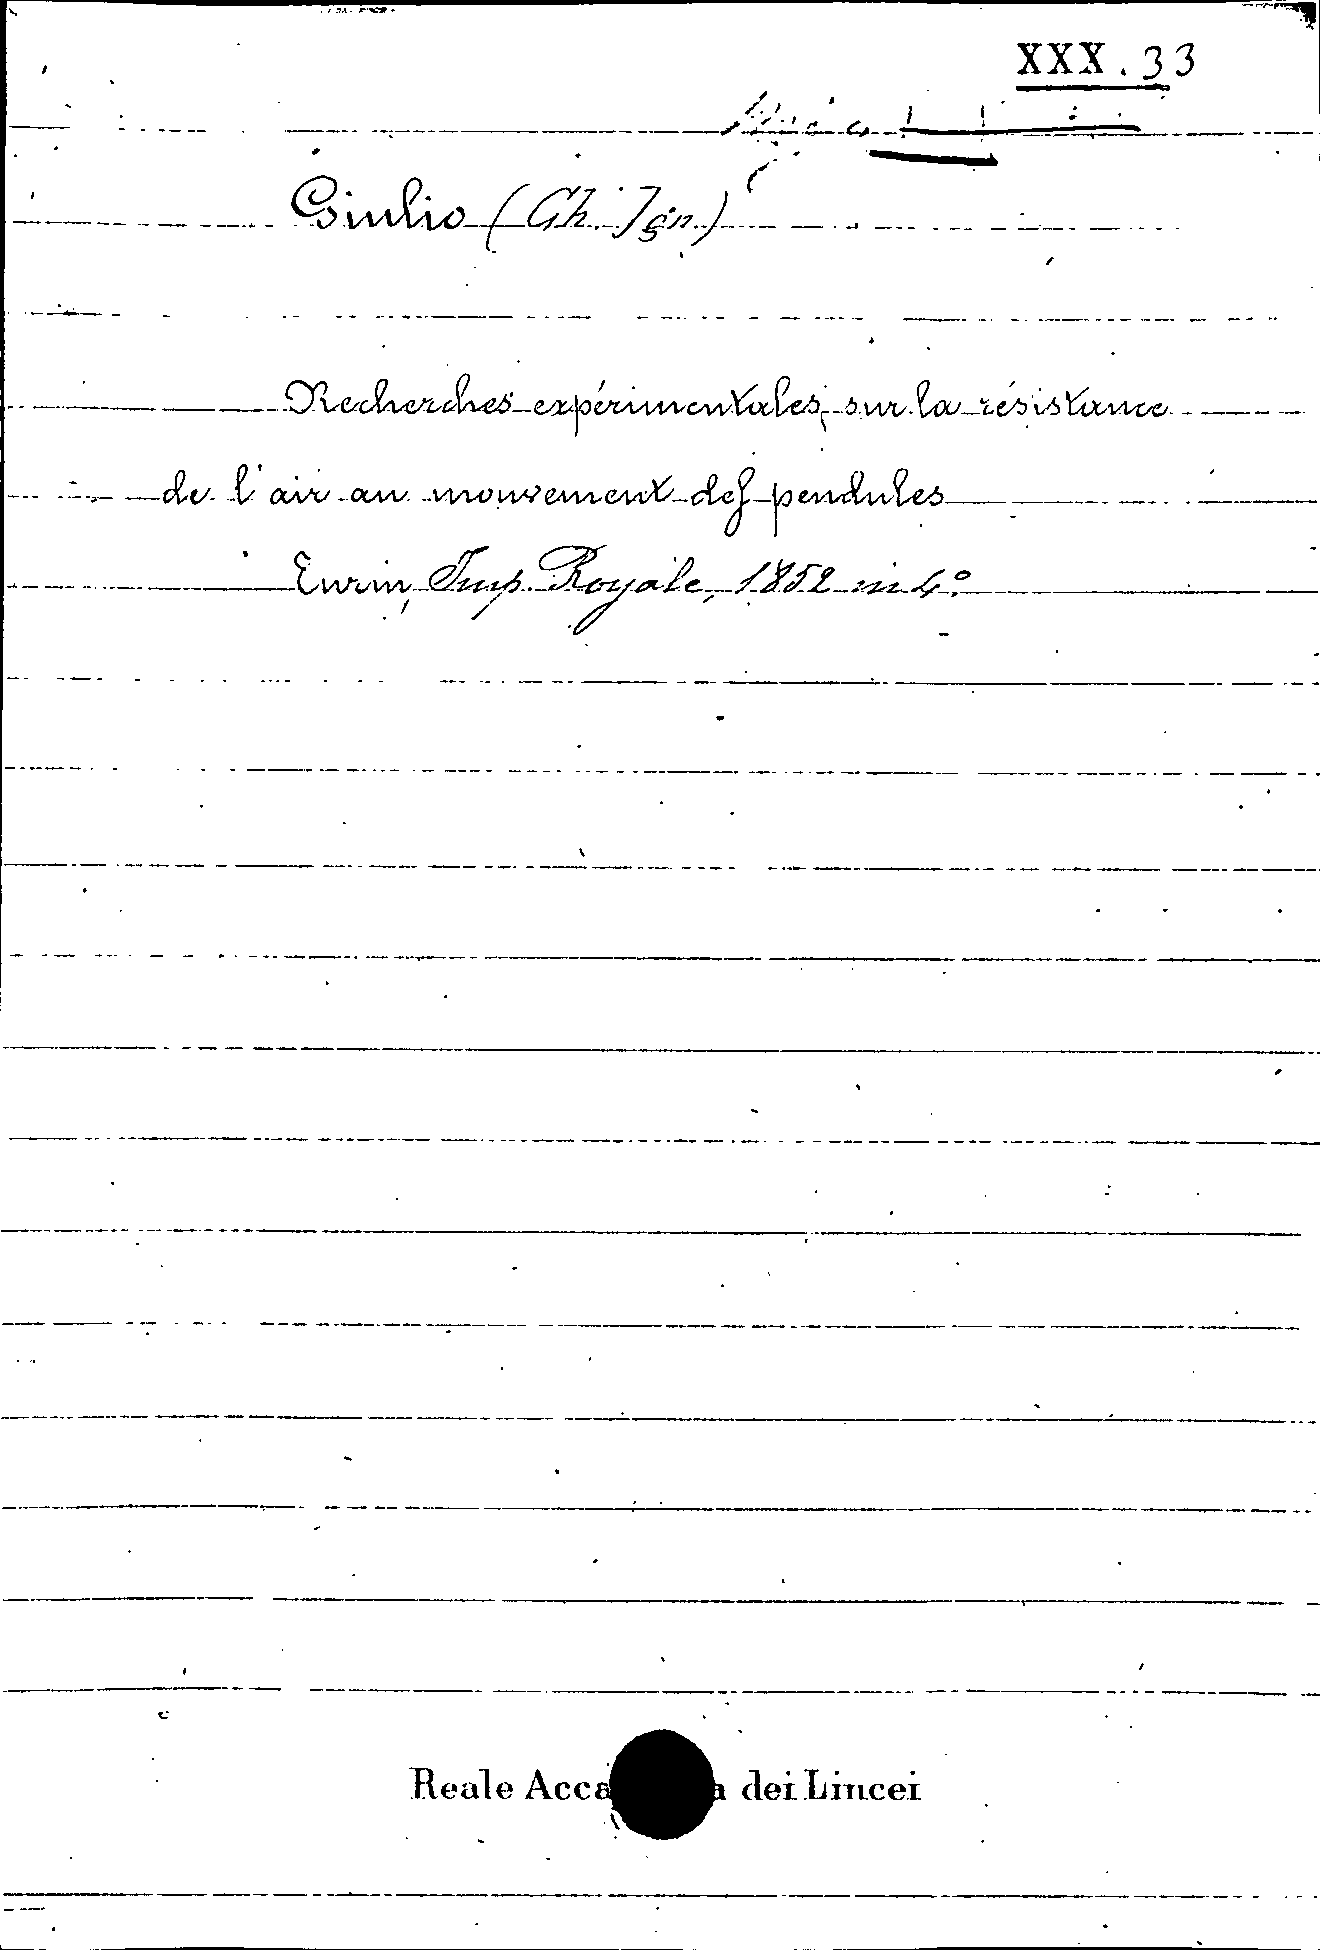 XXX.33
Giulio (Ch. Ign.)
Recherches expérimentales, sur la résistance
de l'air au mouvement des pendules
Turin, Imp. Royale, 1852 in 4.°
Reale Acca a dei Lincei